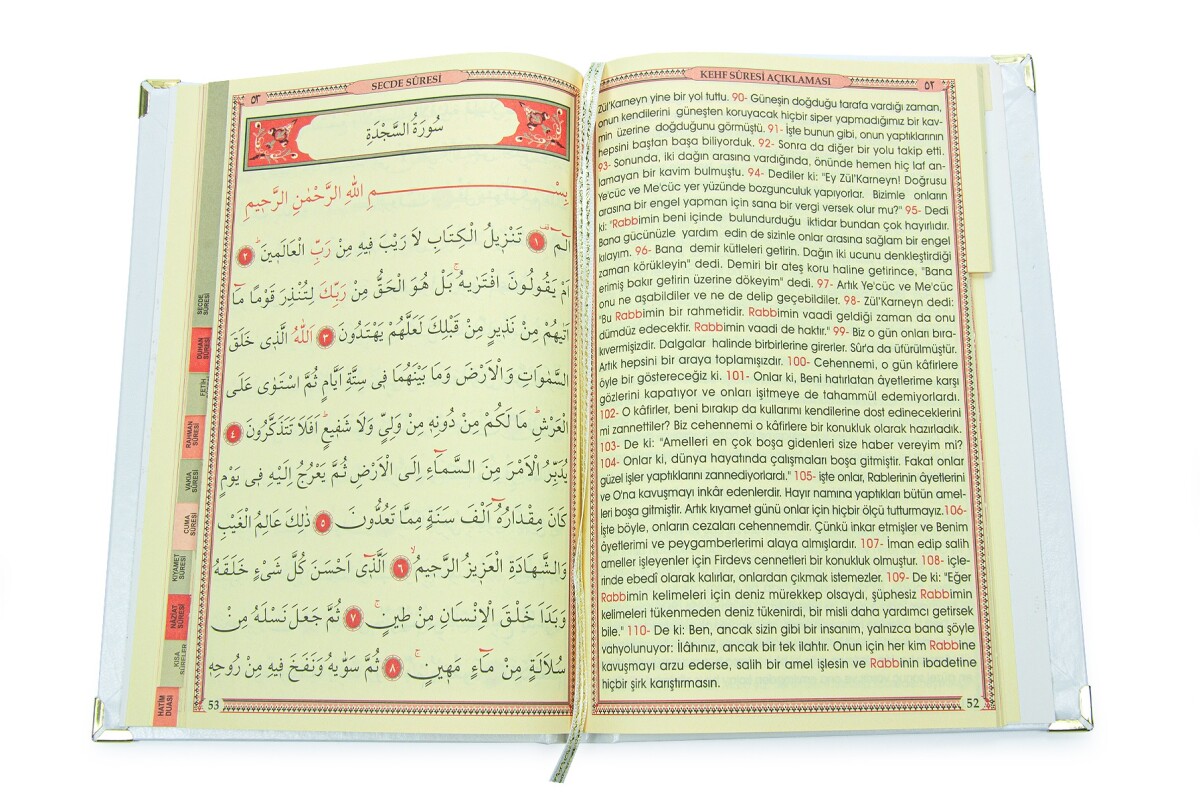 KEHF SÛRESİ AÇIKLAMASI
٥٢
Zül'Karneyn yine bir yol tuttu. 90- Güneşin doğduğu tarafa vardığı zaman,
onun kendilerini güneşten koruyacak hiçbir siper yapmadığımız bir kav-
min üzerine doğduğunu görmüştü. 91- İşte bunun gibi, onun yaptıklarının
hepsini baştan başa biliyorduk. 92- Sonra da diğer bir yolu takip etti.
93- Sonunda, iki dağın arasına vardığında, önünde hemen hiç laf an-
lamayan bir kavim bulmuştu. 94- Dediler ki: "Ey Zül'Karneyn! Doğrusu
Ye'cüc ve Me'cüc yer yüzünde bozgunculuk yapıyorlar. Bizimle onların
arasına bir engel yapman için sana bir vergi versek olur mu?" 95- Dedi
ki: "Rabbimin beni içinde bulundurduğu iktidar bundan çok hayırlıdır.
Bana gücünüzle yardım edin de sizinle onlar arasına sağlam bir engel
kılayım. 96- Bana demir kütleleri getirin. Dağın iki ucunu denkleştirdiği
zaman körükleyin" dedi. Demiri bir ateş koru haline getirince, "Bana
erimiş bakır getirin üzerine dökeyim" dedi. 97- Artık Ye'cüc ve Me'cüc
onu ne aşabildiler ve ne de delip geçebildiler. 98- Zül'Karneyn dedi:
"Bu Rabbimin bir rahmetidir. Rabbimin vaadi geldiği zaman da onu
dümdüz edecektir. Rabbimin vaadi de haktır." 99- Biz o gün onları bıra-
kıvermişizdir. Dalgalar halinde birbirlerine girerler. Sûr'a da üfürülmüştür.
Artık hepsini bir araya toplamışızdır. 100- Cehennemi, o gün kâfirlere
öyle bir göstereceğiz ki. 101- Onlar ki, Beni hatırlatan âyetlerime karşı
gözlerini kapatıyor ve onları işitmeye de tahammül edemiyorlardı.
102- O kâfirler, beni bırakıp da kullarımı kendilerine dost edineceklerini
mi zannettiler? Biz cehennemi o kâfirlere bir konukluk olarak hazırladık.
103- De ki: "Amelleri en çok boşa gidenleri size haber vereyim mi?
104- Onlar ki, dünya hayatında çalışmaları boşa gitmiştir. Fakat onlar
güzel işler yaptıklarını zannediyorlardı." 105- işte onlar, Rablerinin âyetlerini
ve O'na kavuşmayı inkâr edenlerdir. Hayır namına yaptıkları bütün amel-
leri boşa gitmiştir. Artık kıyamet günü onlar için hiçbir ölçü tutturmayız.106-
İşte böyle, onların cezaları cehennemdir. Çünkü inkar etmişler ve Benim
âyetlerimi ve peygamberlerimi alaya almışlardır. 107- İman edip salih
ameller işleyenler için Firdevs cennetleri bir konukluk olmuştur. 108- içle-
rinde ebedî olarak kalırlar, onlardan çıkmak istemezler. 109- De ki: "Eğer
Rabbimin kelimeleri için deniz mürekkep olsaydı, şüphesiz Rabbimin
kelimeleri tükenmeden deniz tükenirdi, bir misli daha yardımcı getirsek
bile." 110- De ki: Ben, ancak sizin gibi bir insanım, yalnızca bana şöyle
vahyolunuyor: İlâhınız, ancak bir tek ilahtır. Onun için her kim Rabbine
kavuşmayı arzu ederse, salih bir amel işlesin ve Rabbinin ibadetine
hiçbir şirk karıştırmasın.
52
٥٣
SECDE SÛRESİ
سُورَةُ السَّجْدَةِ
بِسْمِ اللهِ الرَّحْمٰنِ الرَّحِيمِ
الٓمٓ ١ تَنْزِيلُ الْكِتَابِ لَا رَيْبَ فِيهِ مِنْ رَبِّ الْعَالَمِينَ ٢
اَمْ يَقُولُونَ افْتَرٰيهُ بَلْ هُوَ الْحَقُّ مِنْ رَبِّكَ لِتُنْذِرَ قَوْمًا مَٓا
اَتٰيهُمْ مِنْ نَذِيرٍ مِنْ قَبْلِكَ لَعَلَّهُمْ يَهْتَدُونَ ٣ اَللّٰهُ الَّذِى خَلَقَ
السَّمٰوَاتِ وَالْاَرْضَ وَمَا بَيْنَهُمَا فِى سِتَّةِ اَيَّامٍ ثُمَّ اسْتَوٰى عَلَى
الْعَرْشِ مَا لَكُمْ مِنْ دُونِهِ مِنْ وَلِىٍّ وَلَا شَفِيعٍ اَفَلَا تَتَذَكَّرُونَ ٤
يُدَبِّرُ الْاَمْرَ مِنَ السَّمَٓاءِ اِلَى الْاَرْضِ ثُمَّ يَعْرُجُ اِلَيْهِ فِى يَوْمٍ
كَانَ مِقْدَارُهُٓ اَلْفَ سَنَةٍ مِمَّا تَعُدُّونَ ٥ ذٰلِكَ عَالِمُ الْغَيْبِ
وَالشَّهَادَةِ الْعَزِيزُ الرَّحِيمُ ٦ اَلَّذِٓى اَحْسَنَ كُلَّ شَىْءٍ خَلَقَهُ
وَبَدَاَ خَلْقَ الْاِنْسَانِ مِنْ طِينٍ ٧ ثُمَّ جَعَلَ نَسْلَهُ مِنْ
سُلَالَةٍ مِنْ مَٓاءٍ مَهِينٍ ٨ ثُمَّ سَوّٰيهُ وَنَفَخَ فِيهِ مِنْ رُوحِهِ
53
SECDE
SÛRESİ
DUHAN
SÛRESİ
FETİH
RAHMAN
SÛRESİ
VAKIA
SÛRESİ
CUMA
SÛRESİ
KIYAMET
SÛRESİ
NÂZİAT
SÛRESİ
KISA
SÛRELER
HATİM
DUASI